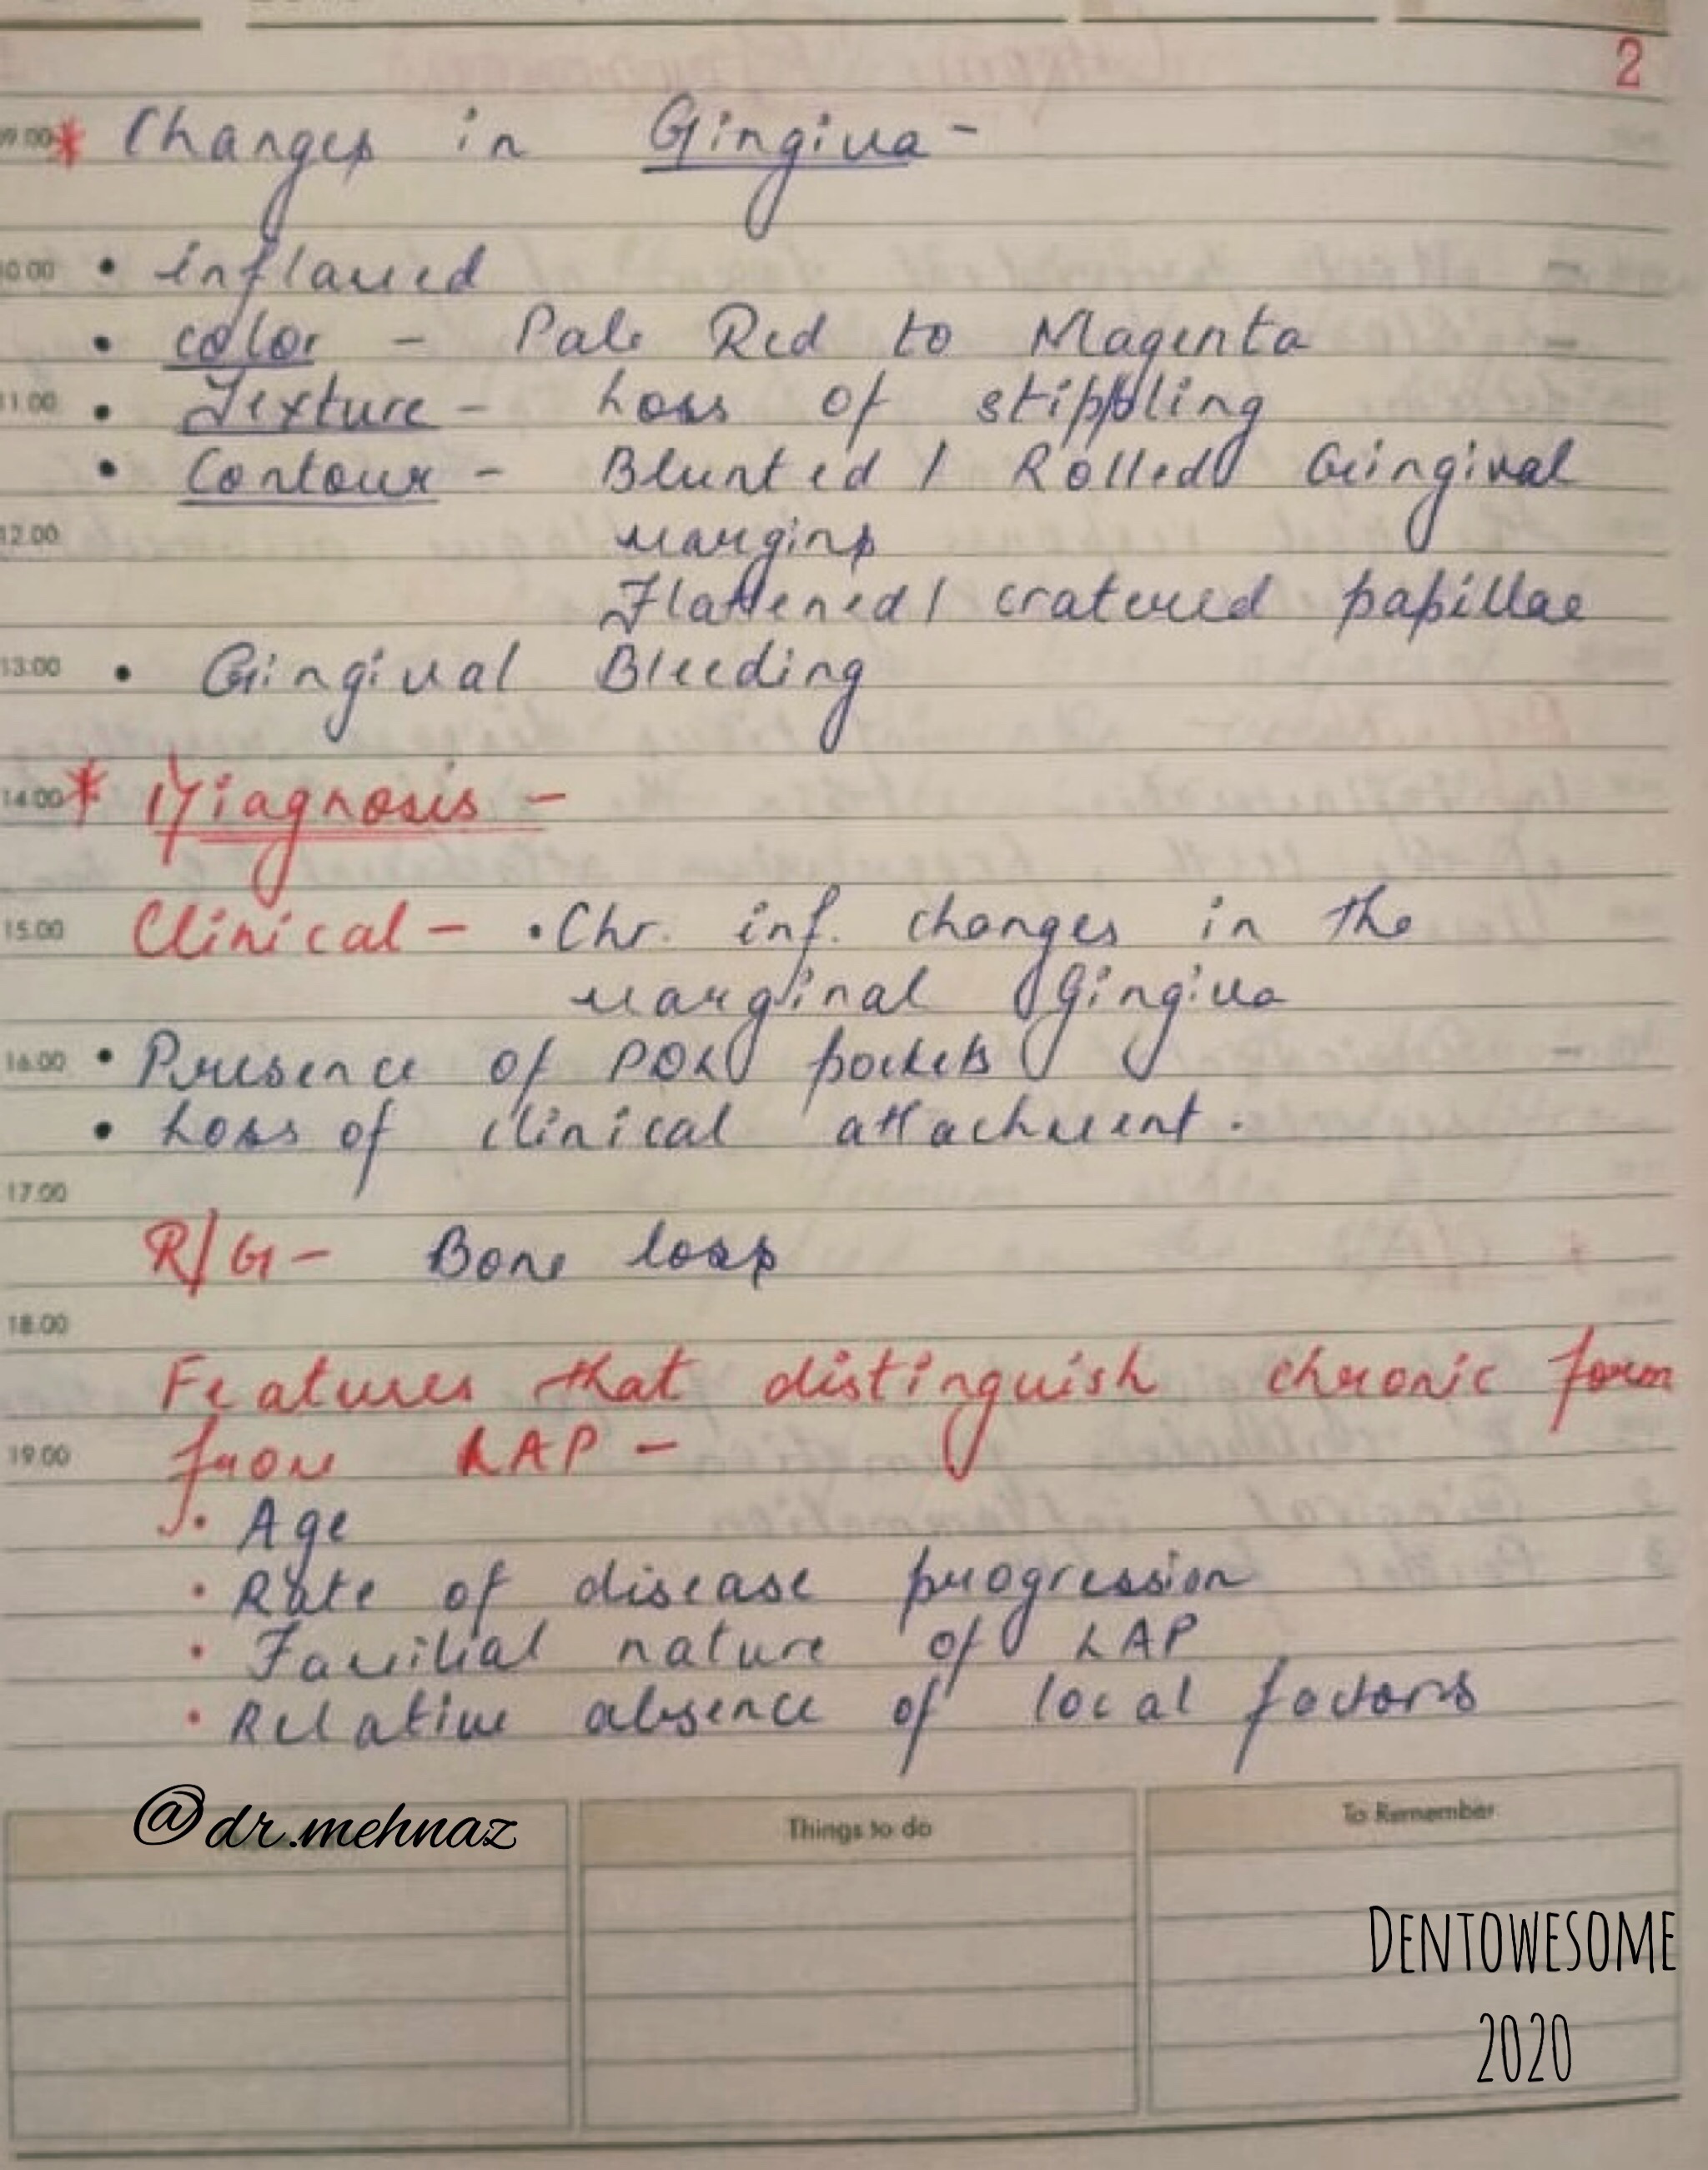 2
09.00 * Changes in Gingiva -
10.00 • inflamed
• color - Pale Red to Magenta
11.00 • Texture - Loss of stippling
• Contour - Blunted / Rolled Gingival
12.00 margins
Flattened / cratered papillae
13.00 • Gingival Bleeding
14.00 * Diagnosis -
15.00 Clinical - • Chr. inf. changes in the
marginal Gingiva
16.00 • Presence of PDL pockets
• Loss of clinical attachment.
17.00
R/G - Bone loss
18.00
Features that distinguish chronic form
19.00 from LAP -
• Age
• Rate of disease progression
• Familial nature of LAP
• Relative absence of local factors
@dr.mehnaz
Things to do
To Remember
DENTOWESOME
2020